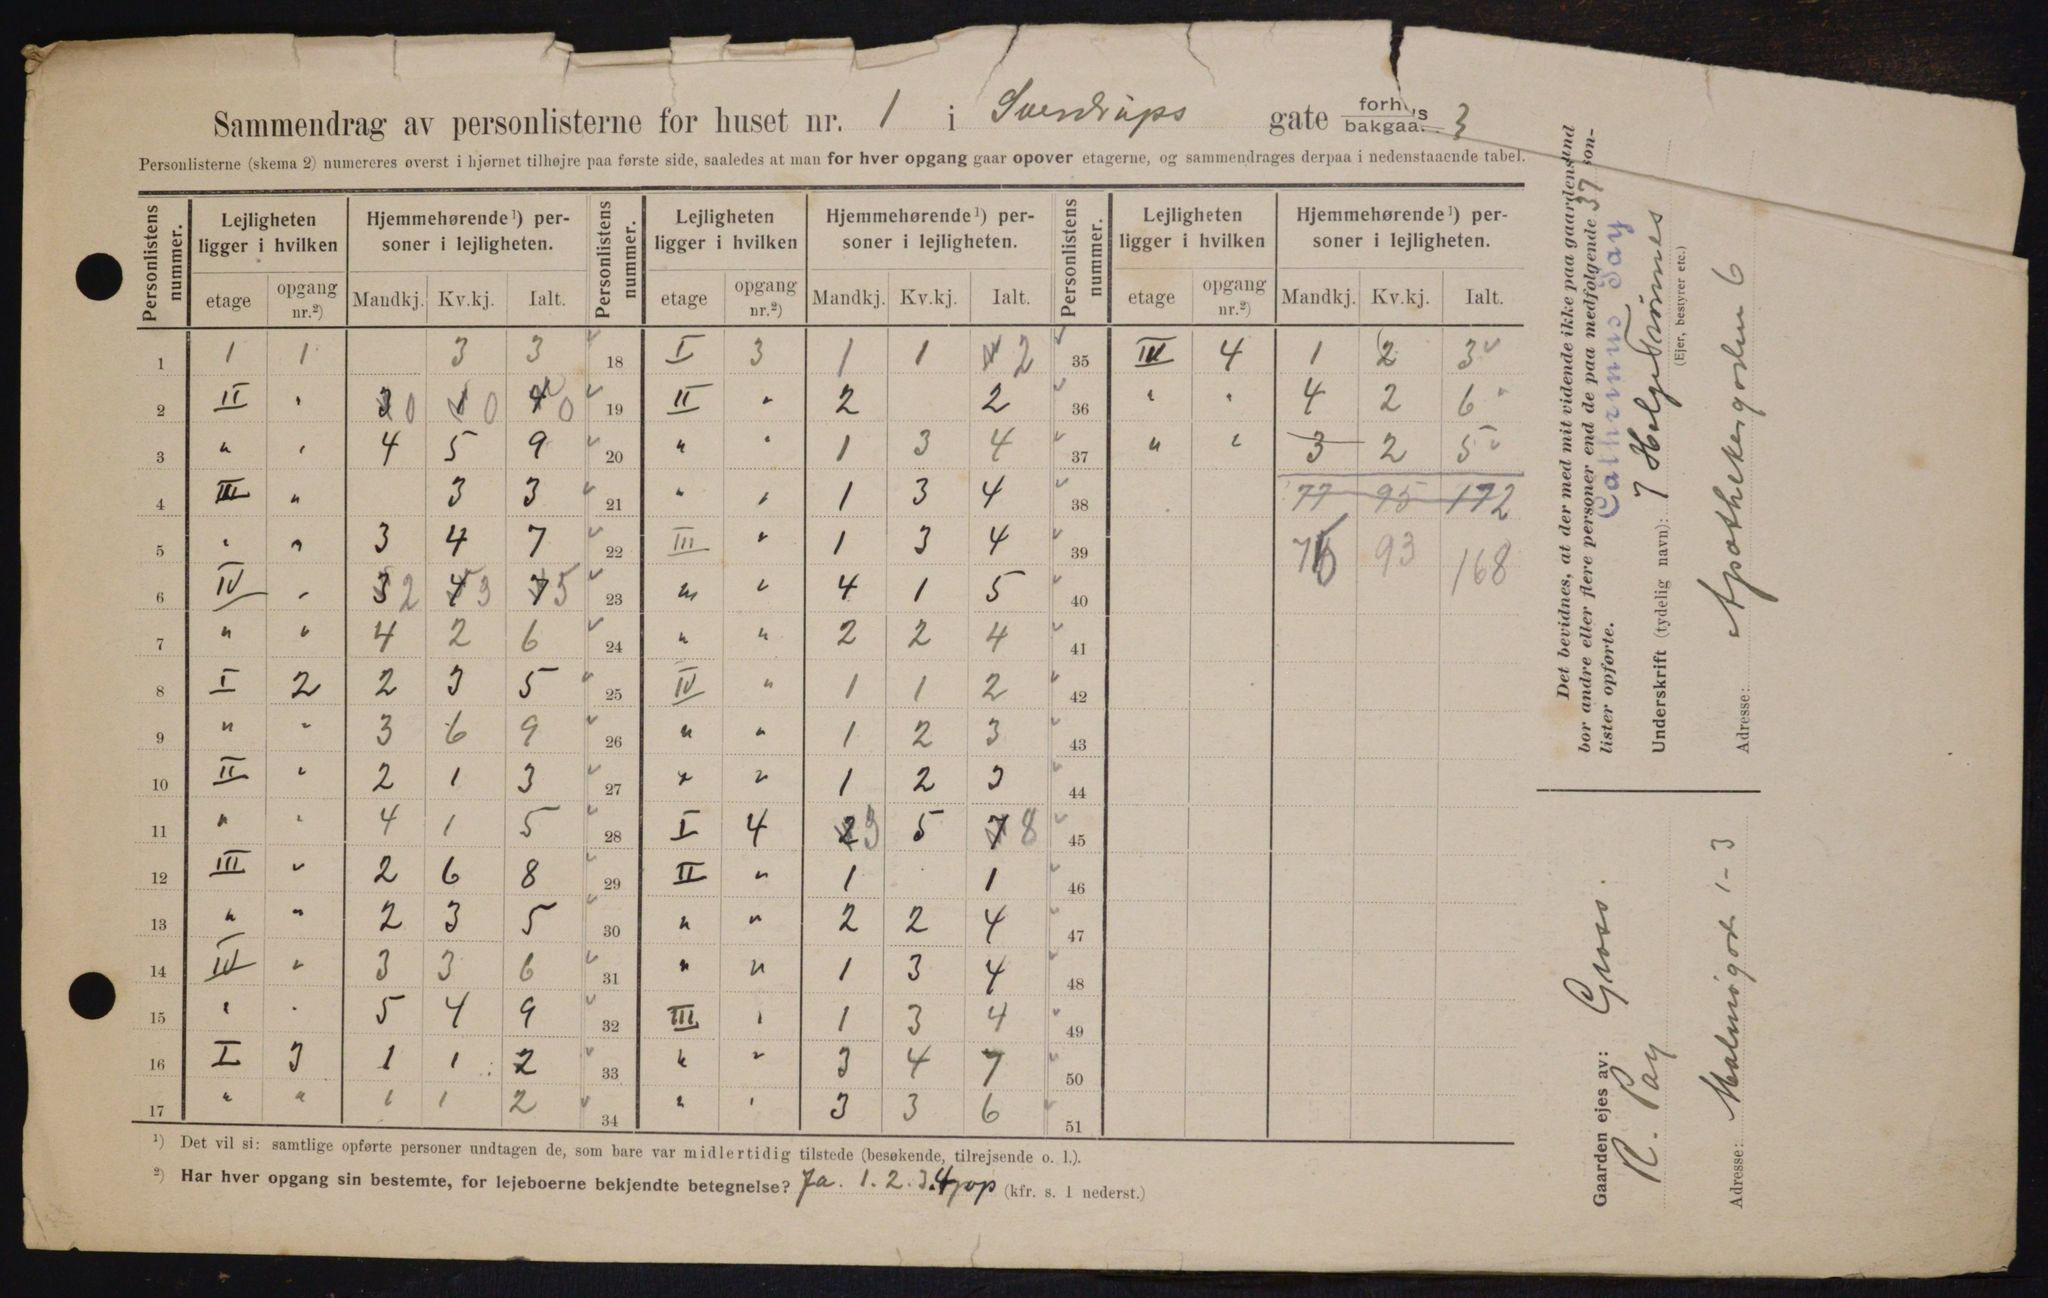 Sammendrag av personlisterne for huset nr. 1 i Sverdrups gate forhus bakgaa. 3
Personlisterne (skema 2) numereres øverst i hjørnet tilhøjre paa første side, saaledes at man for hver opgang gaar opover etagerne, og sammendrages derpaa i nedenstaaende tabel.
Personlistens nummer. Lejligheten ligger i hvilken Hjemmehørende ¹) personer i lejligheten. Personlistens nummer. Lejligheten ligger i hvilken Hjemmehørende ¹) personer i lejligheten. Personlistens nummer. Lejligheten ligger i hvilken Hjemmehørende ¹) personer i lejligheten.
etage opgang nr.²) Mandkj. Kv.kj. Ialt. etage opgang nr.²) Mandkj. Kv.kj. Ialt. etage opgang nr.²) Mandkj. Kv.kj. Ialt.
1 1 1 3 3 18 I 3 1 1 2 35 III 4 1 2 3
2 II " 3 0 1 0 4 0 19 II " 2 2 36 " " 4 2 6
3 " " 4 5 9 20 " " 1 3 4 37 " " 3 2 5
4 III " 3 3 21 " " 1 3 4 38 77 95 172
5 " " 3 4 7 22 III " 1 3 4 39 76 93 168
6 IV " 3 2 4 3 7 5 23 " " 4 1 5 40
7 " " 4 2 6 24 " " 2 2 4 41
8 I 2 2 3 5 25 IV " 1 1 2 42
9 " " 3 6 9 26 " " 1 2 3 43
10 II " 2 1 3 27 " " 1 2 3 44
11 " " 4 1 5 28 I 4 2 3 5 7 8 45
12 III " 2 6 8 29 II " 1 1 46
13 " " 2 3 5 30 " " 2 2 4 47
14 IV " 3 3 6 31 " " 1 3 4 48
15 " " 5 4 9 32 III " 1 3 4 49
16 I 3 1 1 2 33 " " 3 4 7 50
17 " " 1 1 2 34 " " 3 3 6 51
¹) Det vil si: samtlige opførte personer undtagen de, som bare var midlertidig tilstede (besøkende, tilrejsende o. l.).
²) Har hver opgang sin bestemte, for lejeboerne bekjendte betegnelse? Ja. 1. 2. 3. 4 op (kfr. s. 1 nederst.)
Det bevidnes, at der med mit vidende ikke paa gaardens grund
bor andre eller flere personer end de paa medfølgende 37 personlister
opførte.
Cathrinus Pay
Underskrift (tydelig navn): Helge
(Ejer, bestyrer etc.)
Adresse: Apothekergaden 6
Gaarden ejes av: Gross.
R. Pay
Adresse: Malmøgat 1-3